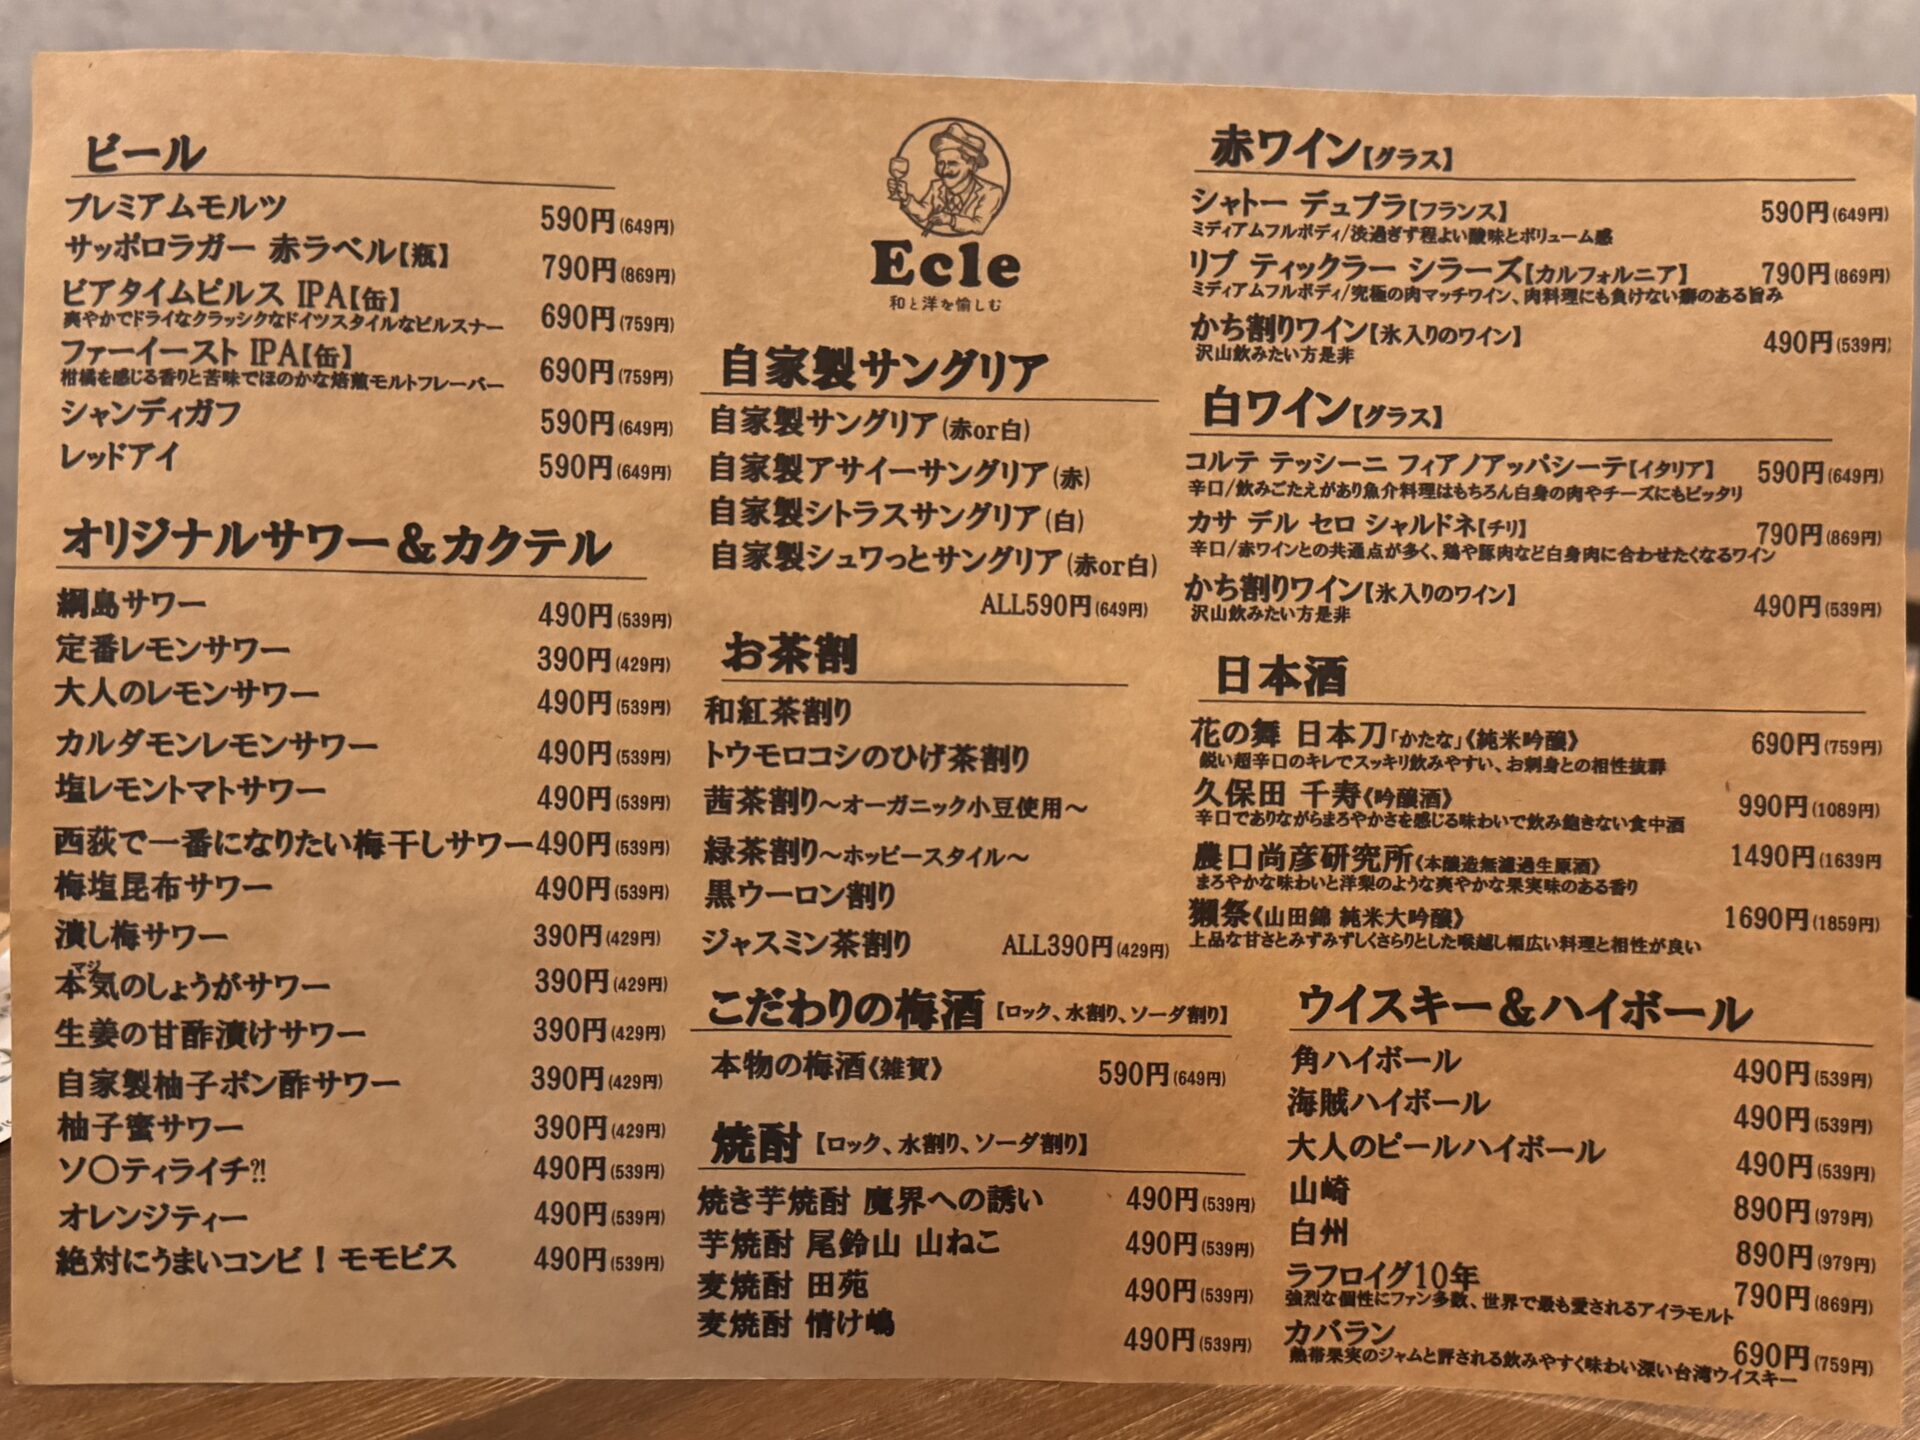 ビール
プレミアムモルツ 590円(649円)
サッポロラガー 赤ラベル【瓶】 790円(869円)
ビアタイムピルス IPA【缶】 690円(759円)
爽やかでドライなクラッシクなドイツスタイルなピルスナー
ファーイースト IPA【缶】 690円(759円)
柑橘を感じる香りと苦味でほのかな焙煎モルトフレーバー
シャンディガフ 590円(649円)
レッドアイ 590円(649円)
オリジナルサワー＆カクテル
綱島サワー 490円(539円)
定番レモンサワー 390円(429円)
大人のレモンサワー 490円(539円)
カルダモンレモンサワー 490円(539円)
塩レモントマトサワー 490円(539円)
西荻で一番になりたい梅干しサワー 490円(539円)
梅塩昆布サワー 490円(539円)
潰し梅サワー 390円(429円)
マジ
本気のしょうがサワー 390円(429円)
生姜の甘酢漬けサワー 390円(429円)
自家製柚子ポン酢サワー 390円(429円)
柚子蜜サワー 390円(429円)
ソ〇ティライチ⁈ 490円(539円)
オレンジティー 490円(539円)
絶対にうまいコンビ！モモピス 490円(539円)
Ecle
和と洋を愉しむ
自家製サングリア
自家製サングリア(赤or白)
自家製アサイーサングリア(赤)
自家製シトラスサングリア(白)
自家製シュワっとサングリア(赤or白)
ALL590円(649円)
お茶割
和紅茶割り
トウモロコシのひげ茶割り
茜茶割り～オーガニック小豆使用～
緑茶割り～ホッピースタイル～
黒ウーロン割り
ジャスミン茶割り ALL390円(429円)
こだわりの梅酒【ロック、水割り、ソーダ割り】
本物の梅酒《雑賀》 590円(649円)
焼酎【ロック、水割り、ソーダ割り】
焼き芋焼酎 魔界への誘い 490円(539円)
芋焼酎 尾鈴山 山ねこ 490円(539円)
麦焼酎 田苑 490円(539円)
麦焼酎 情け嶋 490円(539円)
赤ワイン【グラス】
シャトー デュブラ【フランス】 590円(649円)
ミディアムフルボディ/渋過ぎず程よい酸味とボリューム感
リブ ティックラー シラーズ【カルフォルニア】 790円(869円)
ミディアムフルボディ/究極の肉マッチワイン、肉料理にも負けない癖のある旨み
かち割りワイン【氷入りのワイン】 490円(539円)
沢山飲みたい方是非
白ワイン【グラス】
コルテ テッシーニ フィアノアッパシーテ【イタリア】 590円(649円)
辛口/飲みごたえがあり魚介料理はもちろん白身の肉やチーズにもピッタリ
カサ デル セロ シャルドネ【チリ】 790円(869円)
辛口/赤ワインとの共通点が多く、鶏や豚肉など白身肉に合わせたくなるワイン
かち割りワイン【氷入りのワイン】 490円(539円)
沢山飲みたい方是非
日本酒
花の舞 日本刀「かたな」《純米吟醸》 690円(759円)
鋭い超辛口のキレでスッキリ飲みやすい、お刺身との相性抜群
久保田 千寿《吟醸酒》 990円(1089円)
辛口でありながらまろやかさを感じる味わいで飲み飽きない食中酒
農口尚彦研究所《本醸造無濾過生原酒》 1490円(1639円
まろやかな味わいと洋梨のような爽やかな果実味のある香り
獺祭《山田錦 純米大吟醸》 1690円(1859円)
上品な甘さとみずみずしくさらりとした喉越し幅広い料理と相性が良い
ウイスキー＆ハイボール
角ハイボール 490円(539円)
海賊ハイボール 490円(539円)
大人のビールハイボール 490円(539円)
山崎 890円(979円)
白州 890円(979円)
ラフロイグ10年 790円(869円)
強烈な個性にファン多数、世界で最も愛されるアイラモルト
カバラン 690円(759円)
熱帯果実のジャムと評される飲みやすく味わい深い台湾ウイスキー